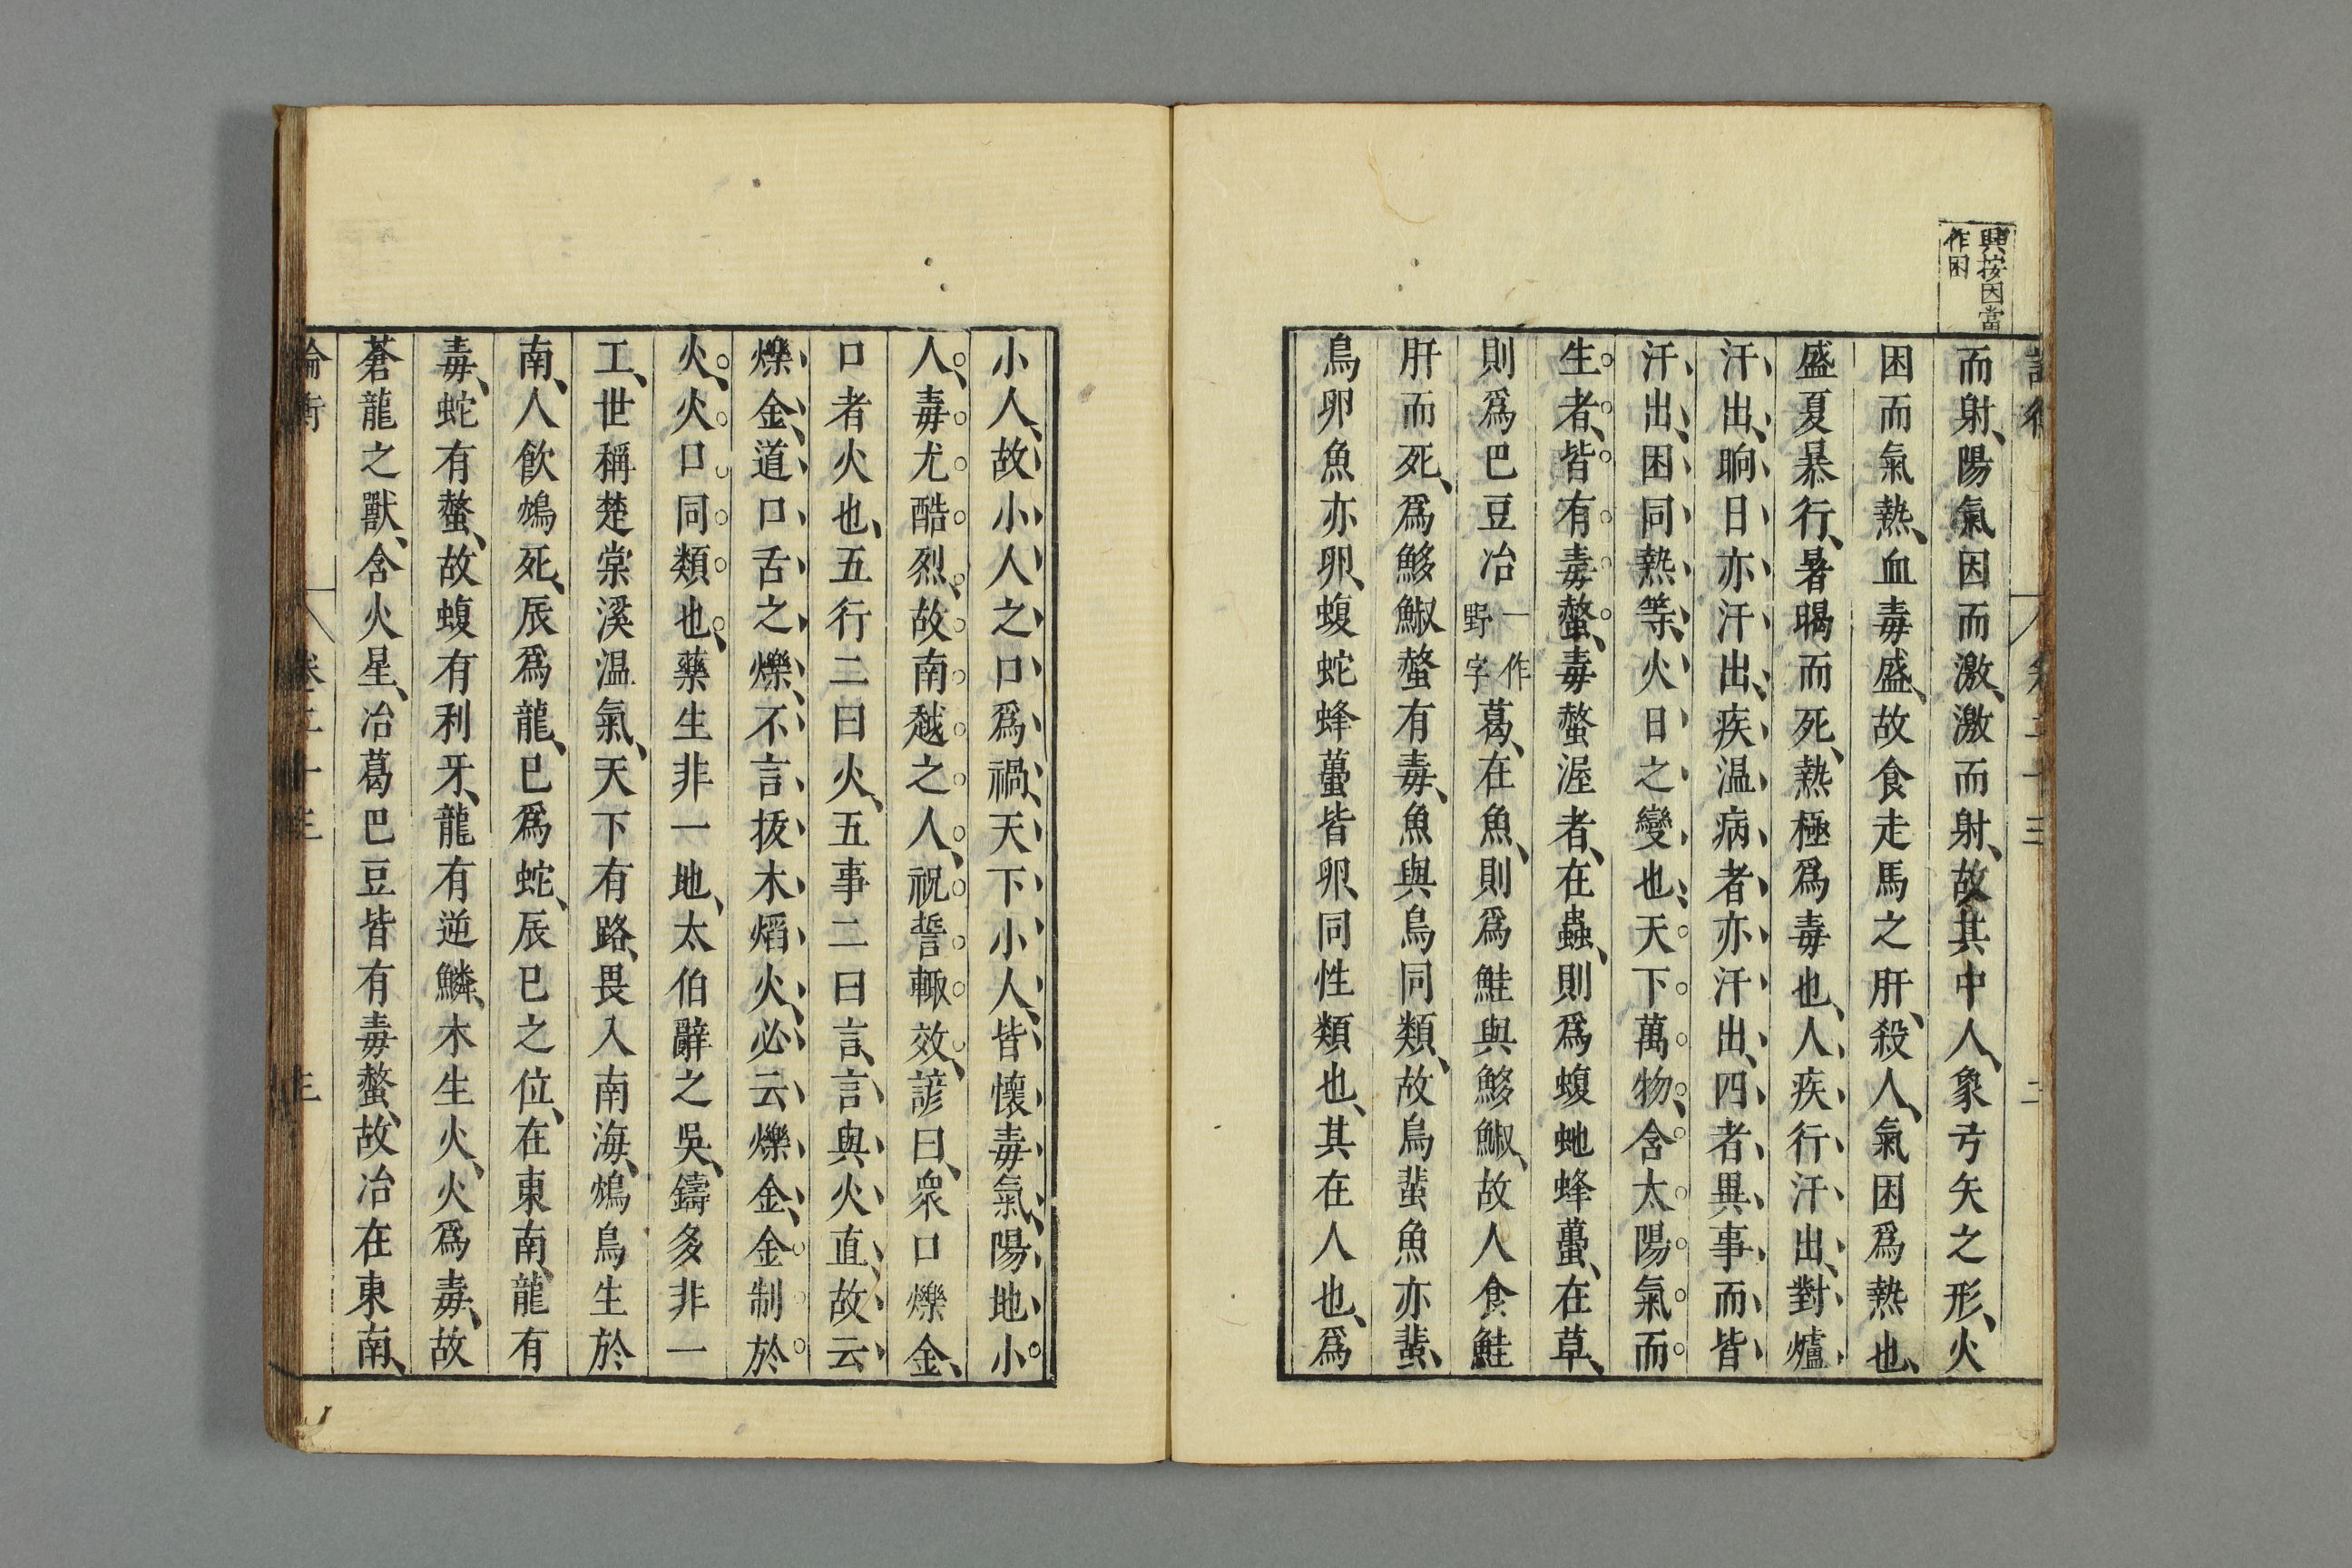 興按因當
作困
而射、陽氣因而激、激而射、故其中人、象弓矢之形、火
困而氣熱、血毒盛、故食走馬之肝、殺人、氣困爲熱也、
盛夏暴行、暑暍而死、熱極爲毒也、人疾行汗出、對爐
汗出、晌日亦汗出、疾温病者亦汗出、四者異事而皆
汗出、困同熱等、火日之變也、天下萬物、含太陽氣而
生者、皆有毒螫、毒螫渥者、在蟲、則爲蝮虵蜂蠆、在草、
則爲巴豆冶一作野字葛、在魚、則爲鮭與鮗䱙、故人食鮭
肝而死、爲鮗䱙螫有毒、魚與鳥同類、故鳥蜚魚亦蜚、
鳥卵魚亦卵、蝮蛇蜂蠆皆卵、同性類也、其在人也、爲
小人、故小人之口爲禍、天下小人、皆懷毒氣、陽地小
人、毒尤酷烈、故南越之人、祝誓輙效、諺曰、衆口爍金、
口者火也、五行二曰火、五事二曰言、言與火直、故云
爍金、道口舌之爍、不言拔木熖火、必云爍金、金制於
火、火口同類也、藥生非一地、太伯辭之吳、鑄多非一
工、世稱楚棠溪温氣、天下有路、畏入南海、鴆鳥生於
南、人飮鴆死、辰爲龍、巳爲蛇、辰巳之位、在東南、龍有
毒、蛇有螫、故蝮有利牙、龍有逆鱗、木生火、火爲毒、故
蒼龍之獸、含火星、冶葛巴豆皆有毒螫、故冶在東南、
論衡 卷二十三 三